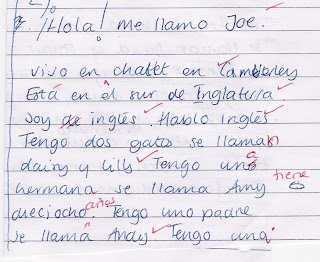 ¡Hola! me llamo Joe.
vivo en chalet en Camberley
Está en el sur de Inglaterra
Soy de inglés. Hablo inglés.
Tengo dos gatos se llaman
daisy y Lilly Tengo una
hermana se llama Amy tiene
dieciocho años. Tengo uno padre
se llama Andy. Tengo una